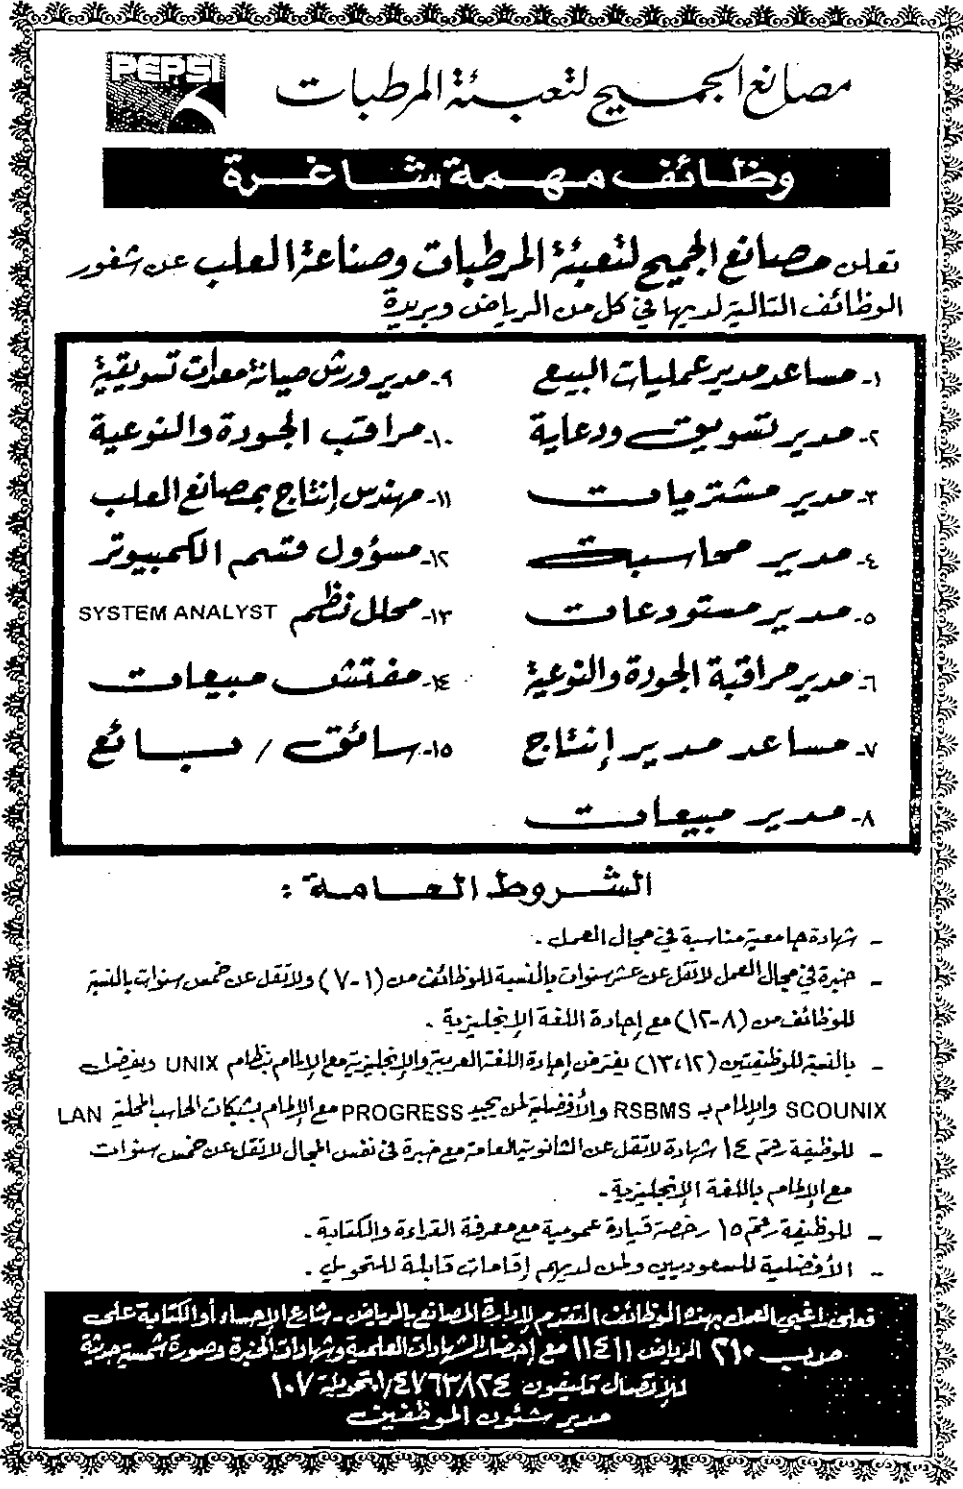 PEPSI
مصانع الجميح لتعبئة المرطبات
وظائف مهمة شاغرة
تعلن مصانع الجميح لتعبئة المرطبات وصناعة العلب عن شغور
الوظائف التالية لديها في كل من الرياض وبريدة
١- مساعد مدير عمليات البيع
٢- مدير تسويق ودعاية
٣- مدير مشتريات
٤- مدير محاسبة
٥- مدير مستودعات
٦- مدير مراقبة الجودة والنوعية
٧- مساعد مدير إنتاج
٨- مدير مبيعات
٩- مدير ورش صيانة معدات تسويقية
١٠- مراقب الجودة والنوعية
١١- مهندس إنتاج بمصانع العلب
١٢- مسؤول قسم الكمبيوتر
١٣- محلل نظم SYSTEM ANALYST
١٤- مفتش مبيعات
١٥- سائق / بائع
الشروط العامة :
- شهادة جامعية مناسبة في مجال العمل .
- خبرة في مجال العمل لا تقل عن عشر سنوات بالنسبة للوظائف من (١-٧) ولا تقل عن خمس سنوات بالنسبة
للوظائف من (٨-١٢) مع إجادة اللغة الإنجليزية .
- بالنسبة للوظيفتين (١٣،١٢) يفترض إجادة اللغة العربية والإنجليزية مع الإلمام بنظام UNIX ويفضل
SCOUNIX والإلمام بـ RSBMS والأفضلية لمن يجيد PROGRESS مع الإلمام بشبكات الحاسب المحلية LAN
- للوظيفة رقم ١٤ شهادة لا تقل عن الثانوية العامة مع خبرة في نفس المجال لا تقل عن خمس سنوات
مع الإلمام باللغة الإنجليزية .
- للوظيفة رقم ١٥ رخصة قيادة عمومية مع معرفة القراءة والكتابة .
- الأفضلية للسعوديين ولمن لديهم إقامات قابلة للتحويل .
فعلى راغبي العمل بهذه الوظائف التقدم لإدارة المصانع بالرياض - شارع الإحساء أو الكتابة على
ص.ب ٢١٠ الرياض ١١٤١١ مع إحضار الشهادات العلمية وشهادات الخبرة وصورة شمسية حديثة
للإتصال تليفون ٠١/٤٧٦٣٨٢٤ تحويلة ١٠٧
مدير شئون الموظفين